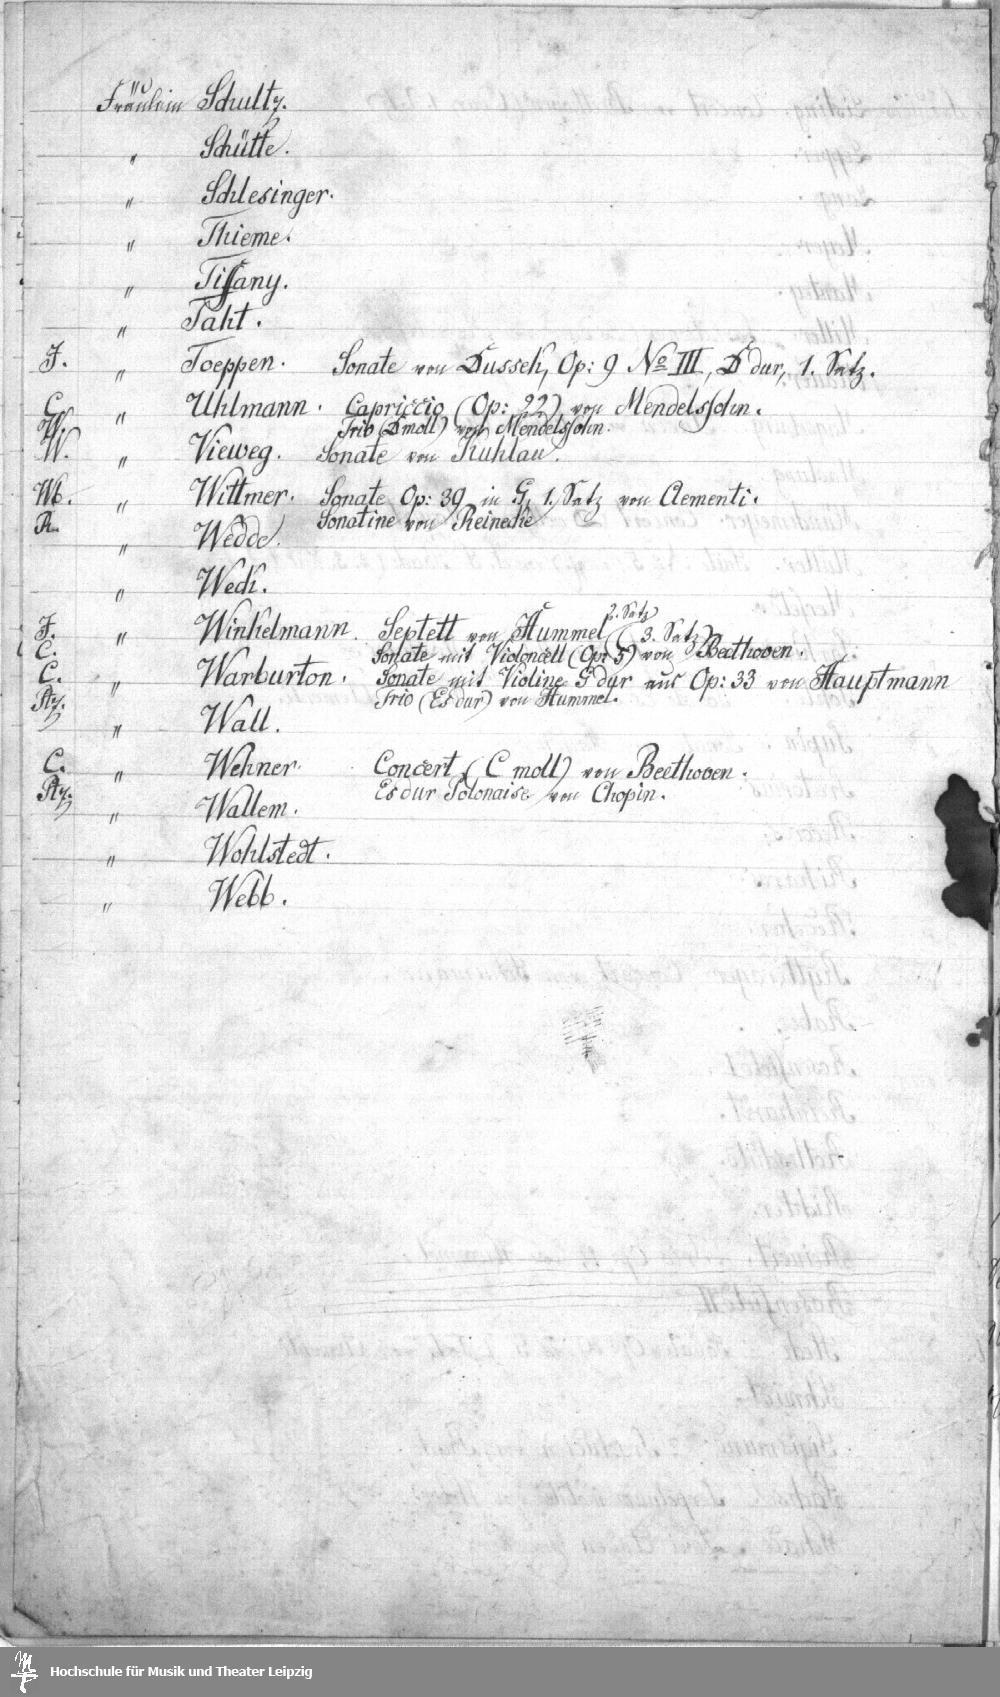 Fräulein Schultz.
" Schütte.
" Schlesinger.
" Thieme.
" Tiffany.
" Taht.
J. " Toeppen. Sonate von Dussek, Op: 9 No III, D dur, 1. Satz.
C. " Uhlmann. Capriccio (Op: 22) von Mendelssohn.
W. Trio (D moll) von Mendelssohn.
W. " Vieweg. Sonate von Kuhlau.
Wb. " Wittmer. Sonate Op: 39 in G, 1. Satz von Clementi.
R. Sonatine von Reinecke
" Wedde.
" Weck.
2. Satz
J. " Winkelmann. Septett von Hummel (3. Satz)
C. Sonate mit Violoncell (Op: 5) von Beethoven.
C. " Warburton. Sonate mit Violine G dur aus Op: 33 von Hauptmann
Ptz. Trio (Es dur) von Hummel.
" Wall.
C. " Wehner. Concert (C moll) von Beethoven.
Ptz. Es dur Polonaise von Chopin.
" Wallem.
" Wohlstedt.
" Webb.
Hochschule für Musik und Theater Leipzig